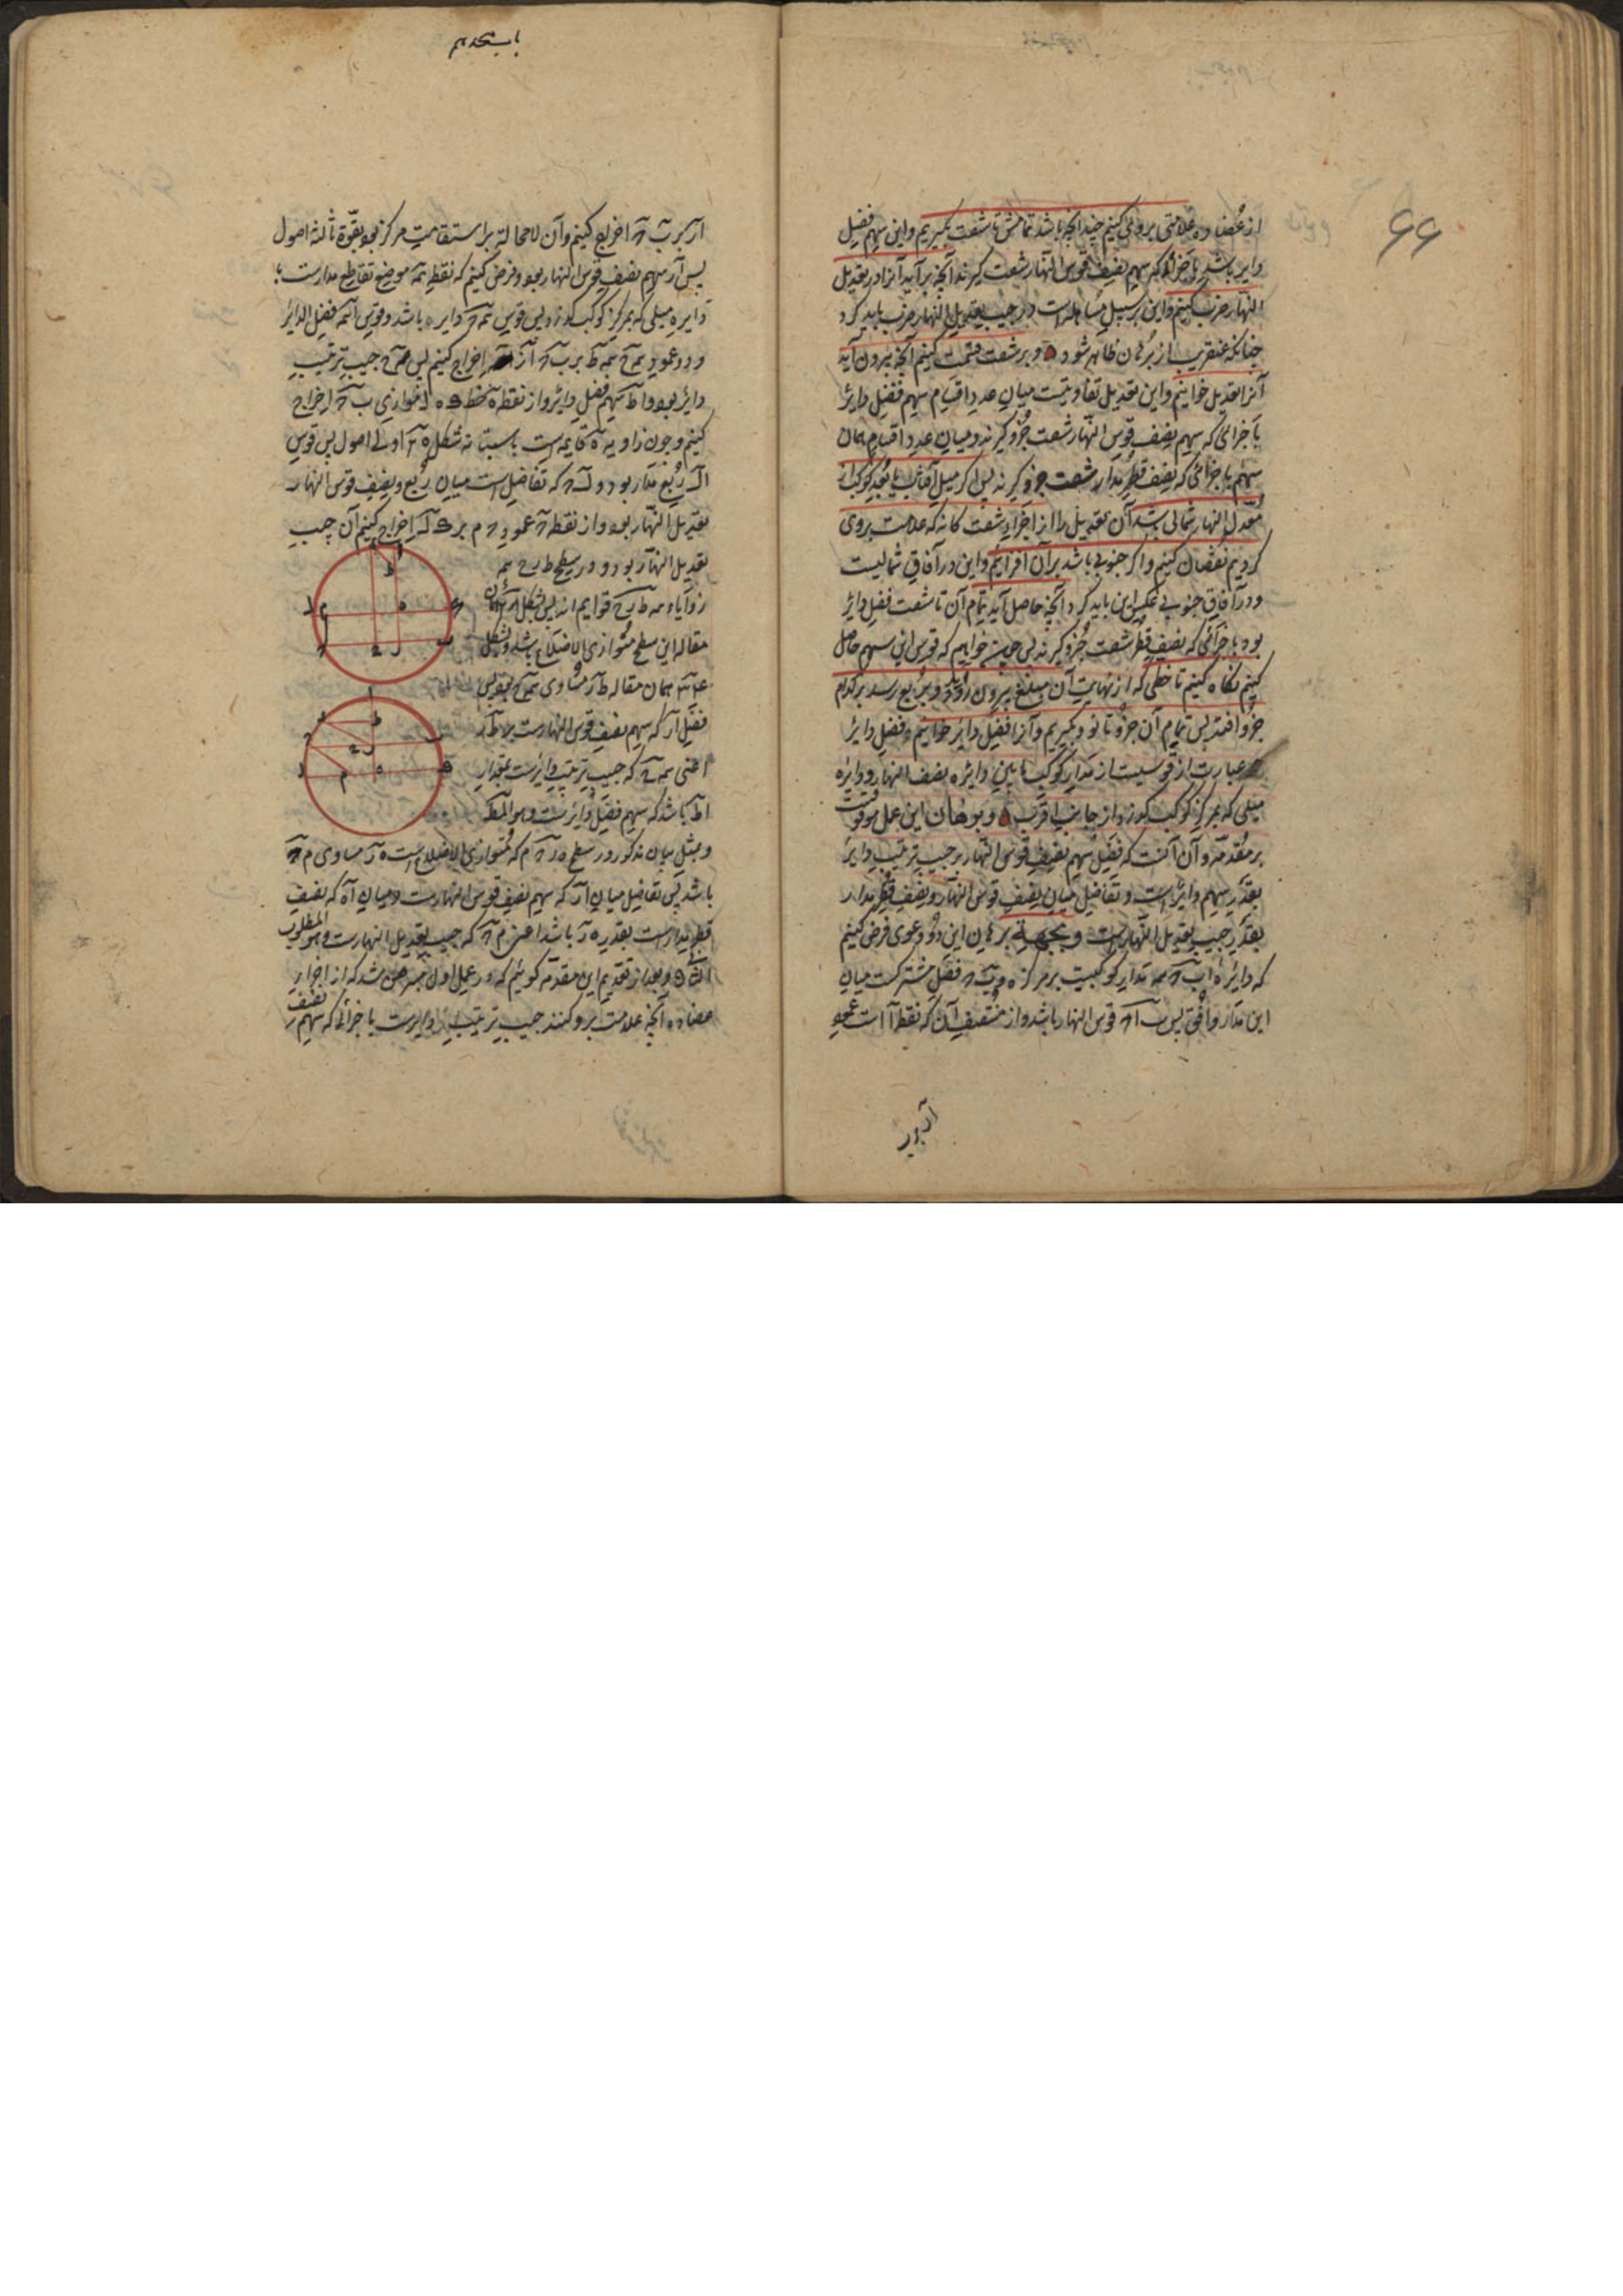 ۶۶
از عضاده علامتی بروی کنیم چندانچه باشد تمامش تا شصت بگیریم و این سهم فضل
دایر باشد باجزائی که سهم نصف قوس النهار شصت گیرند آنچه برآید آنرا در تعدیل
النهار ضرب کنیم و این بر سبیل مساهله است و در جیب تعدیل النهار ضرب باید کرد
چنانکه عنقریب از برهان ظاهر شود و بر شصت قسمت کنیم آنچه بیرون آید
آنرا تعدیل خوانیم و این تعدیل تفاوتیست میان عدد اقسام سهم فضل دایر
باجزائی که سهم نصف قوس النهار شصت جزو گیرند و میان عدد اقسام همان
سهم باجزائی که نصف قطر مدار شصت جزو گیرند پس اگر میل آفتاب یا بعد کوکب از
معدل النهار شمالی باشد آن تعدیل را از اجزاء شصت گانه که علامت بروی
کردیم نقصان کنیم و اگر جنوبی باشد بر آن افزائیم و این در آفاق شمالیست
و در آفاق جنوبی عکس این باید کرد و آنچه حاصل آید تمام آن تا شصت فضل دایر
بود باجزائی که نصف قطر شصت جزو گیرند پس چون خواهیم که قوس این سهم حاصل
کنیم نگاه کنیم تا خطی که از نهایت آن مبلغ بیرون رود و بربع رسد بر کدام
جزو افتد پس تمام آن جزو تا نود بگیریم و آنرا فضل دایر خوانیم و فضل دایر
عبارت از قوسیست از مدار کوکب مابین دایره نصف النهار و دایره
میلی که بمرکز کوکب گذرد از جانب اقرب و برهان این عمل موقوفست
بر مقدمه و آن آنست که فضل سهم نصف قوس النهار بر جیب ترتیب دایر
بقدر سهم دایر است و تفاضل میان نصف قوس النهار و نصف قطر مدار
بقدر جیب تعدیل النهارست و بجهة برهان این دو دعوی فرض کنیم
که دایره اب مدار کوکبیست بر مرکز ه و فصل مشترکست میان
این مدار و افق پس قوس النهار باشد و از منتصف آن که نقطه آ است عمود
آر بر
باستخدم
آر بر ب‌ اخراج کنیم و آن لامحالة بر استقامت مرکز بود بقوة ثالثه اصول
پس آر سهم نصف قوس النهار بود و فرض کنیم که نقطه موضع تقاطع مدارست با
دایره میلی که بمرکز کوکب گذرد پس قوس دایر باشد و قوس فضل الدایر
و دو عمود از اخراج کنیم پس جیب ترتیب
دایر بود و اط سهم فضل دایر و از نقطه ه خط موازی ب اخراج
کنیم و چون زاویه ه قایمه است باستبانه شکل اولی اصول پس قوس
ربع مدار بود و که تفاضل است میان ربع و نصف قوس النهار
تعدیل النهار بود و از نقطه عمود م بر اخراج کنیم آن جیب
تعدیل النهار بود و در سطح
زوایاء قوایم اند پس بشکل
مقاله این سطح متوازی الاضلاع باشد و بشکل
همان مقاله طر مساوی بود پس
فضل آر که سهم نصف قوس النهارست بر طر
اعنی که جیب ترتیب دایرست بمقدار
اط باشد که سهم فضل دایر ست و هو المط
و بمثل بیان مذکور در سطح م که متوازی الاضلاع است ه ر مساوی م
باشد پس تفاضل میان آر که سهم نصف قوس النهارست و میان آه که نصف
قطر مدارست بقدر ه ر باشد اعنی م که جیب تعدیل النهارست و هو المطلوب
و بعد از تقدیم این مقدمه گوئیم که در عمل اول مبرهن شد که از اجزاء
عضاده آنچه علامت برو کنند جیب ترتیب دایرست باجزائی که سهم نصف